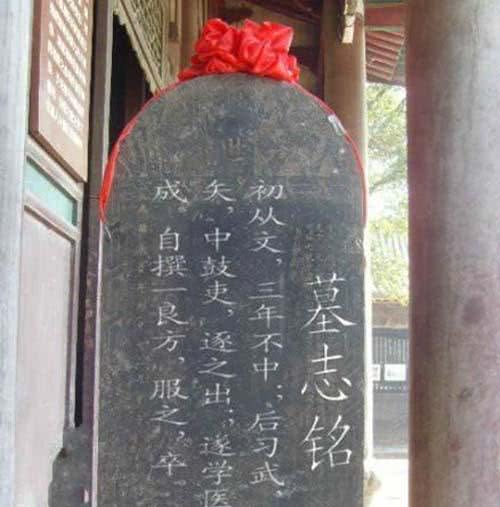 墓志铭
初从文，三年不中；后习武，
矣，中鼓吏，逐之出；遂学医
成 自撰一良方，服之，卒